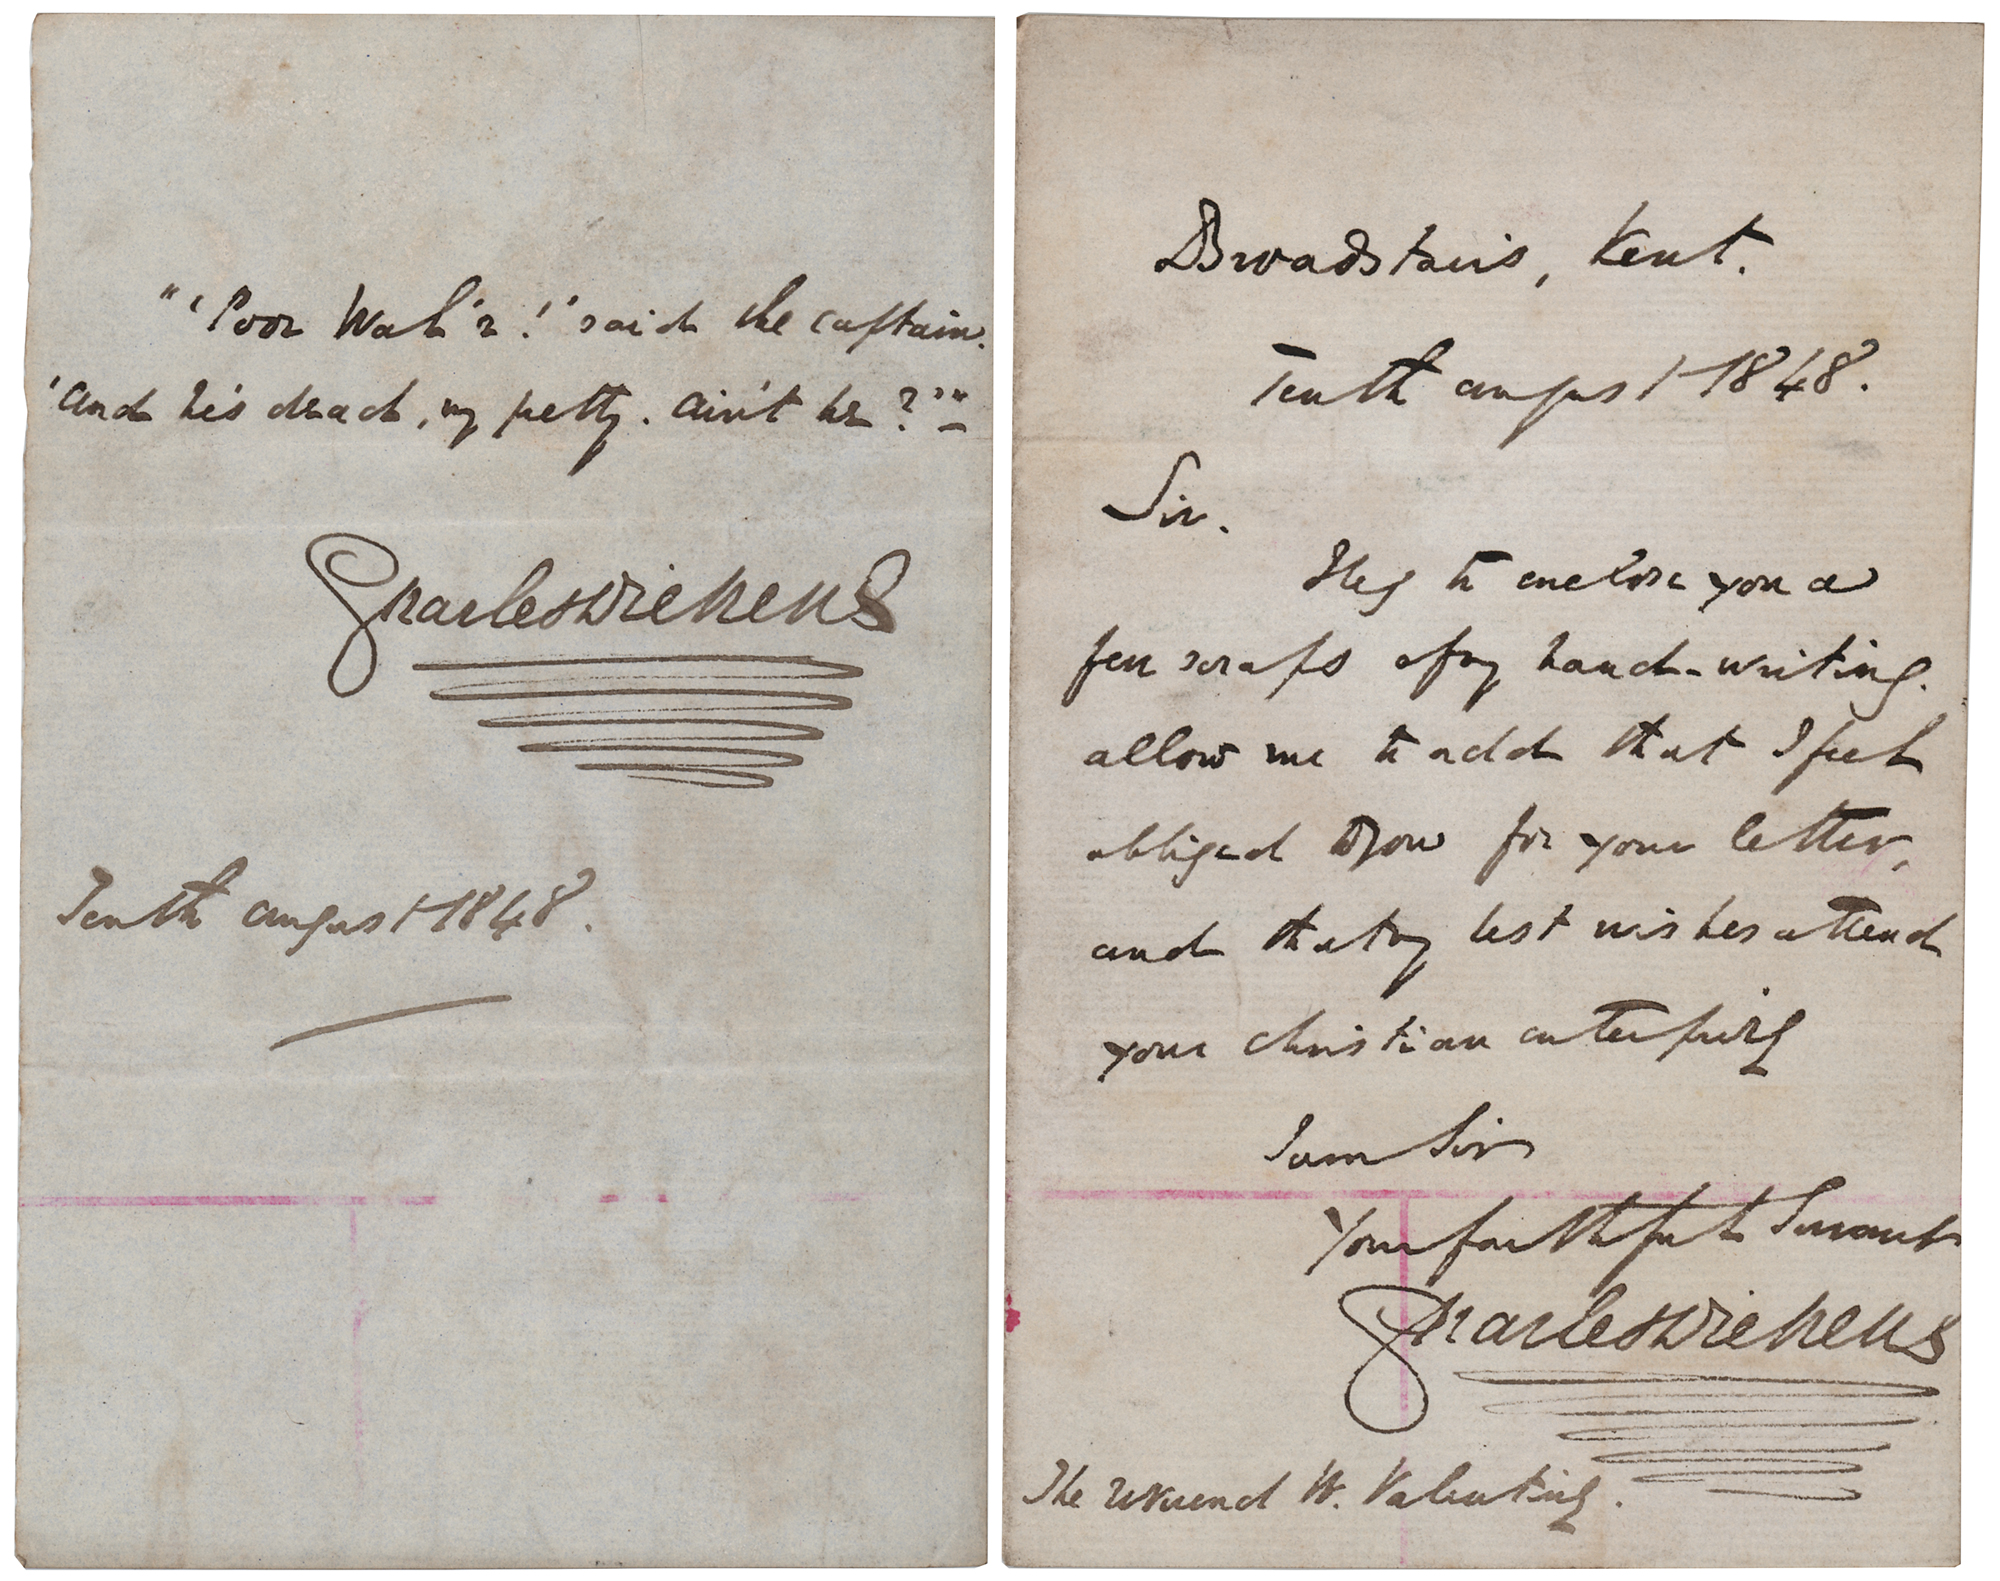 "'Poor Wal'r!' said the captain.
'And he's dead, my pretty. Ain't he?'"
Charles Dickens
Tenth August 1848.
Broadstairs, Kent.
Tenth August 1848.
Sir.
I beg to enclose you a
few scraps of my hand-writing.
Allow me to add that I feel
obliged to you for your letter,
and that my best wishes attend
your christian enterprise
I am Sir
Your faithful Servant
Charles Dickens
The Reverend W. Valentine.